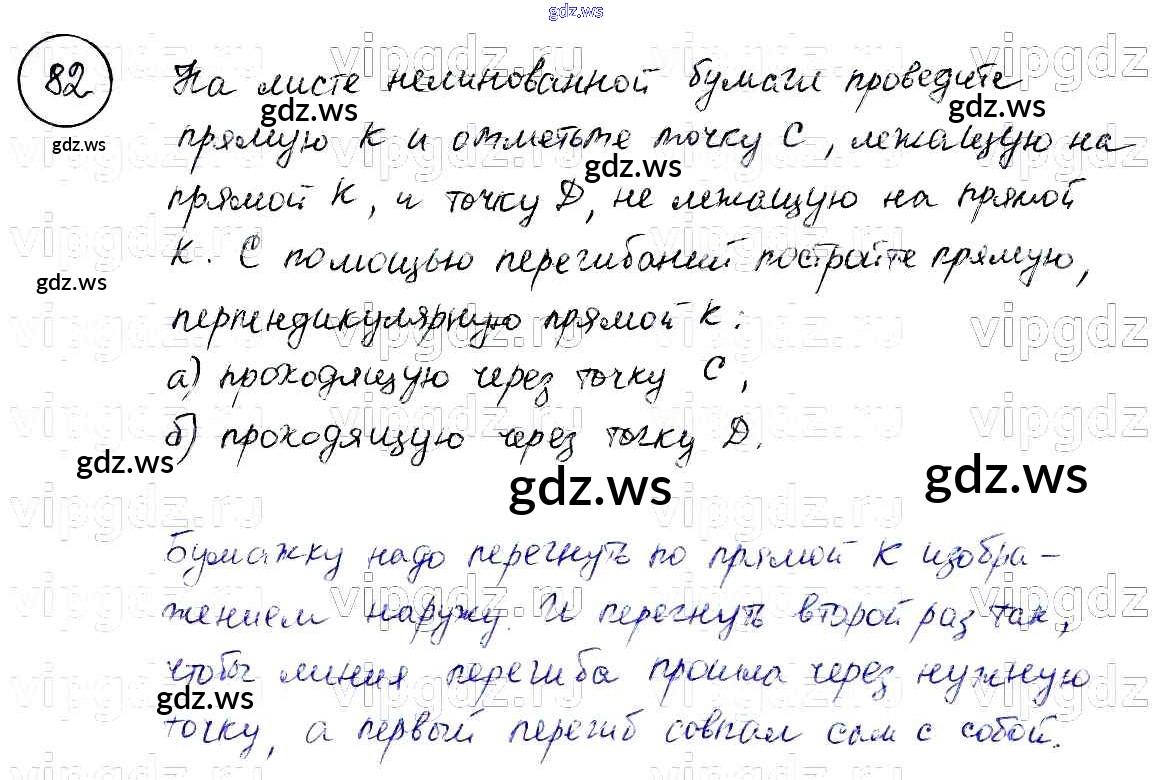 gdz.ws
82 На листе нелинованной бумаги проведите
прямую К и отметьте точку С, лежащую на
прямой К, и точку D, не лежащую на прямой
К. С помощью перегибаний постройте прямую,
перпендикулярную прямой К:
а) проходящую через точку С,
б) проходящую через точку D.
Бумажку надо перегнуть по прямой К изобра-
жением наружу. И перегнуть второй раз так,
чтобы линия перегиба прошла через нужную
точку, а первый перегиб совпал сам с собой.
gdz.ws
gdz.ws
gdz.ws
gdz.ws
gdz.ws
gdz.ws
gdz.ws
gdz.ws
gdz.ws
vipgdz.ru